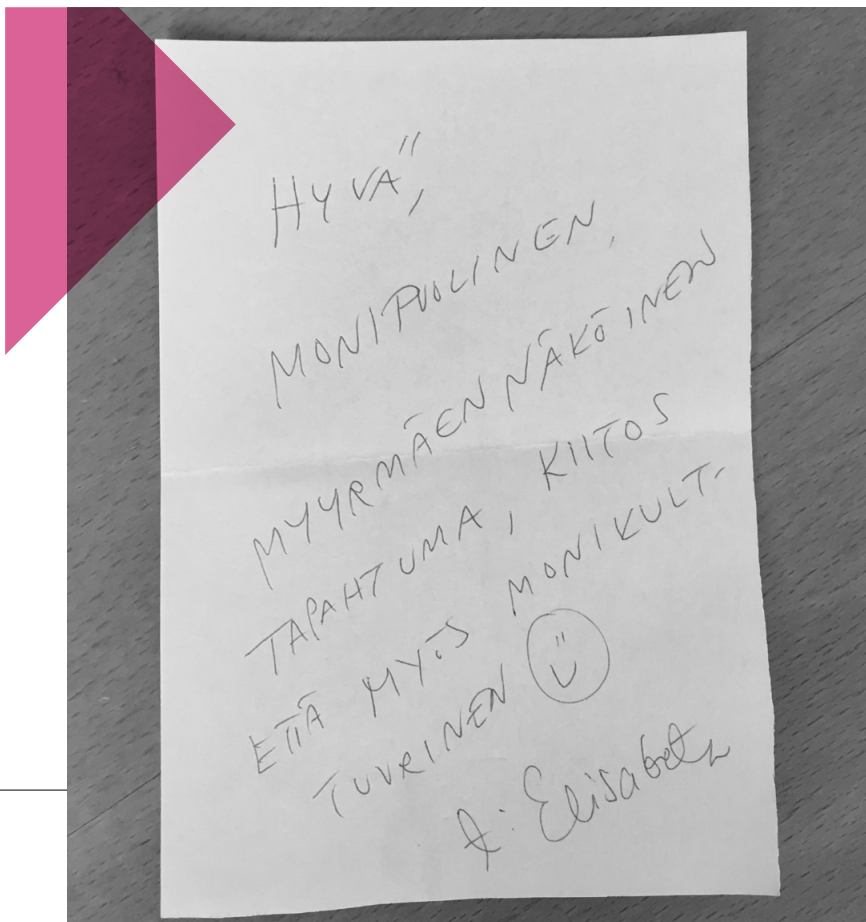 HYVÄ,
MONIPUOLINEN,
MYYRMÄEN NÄKÖINEN
TAPAHTUMA, KIITOS
ETTÄ MYÖS MONIKULT-
TUURINEN
t: Elisabet